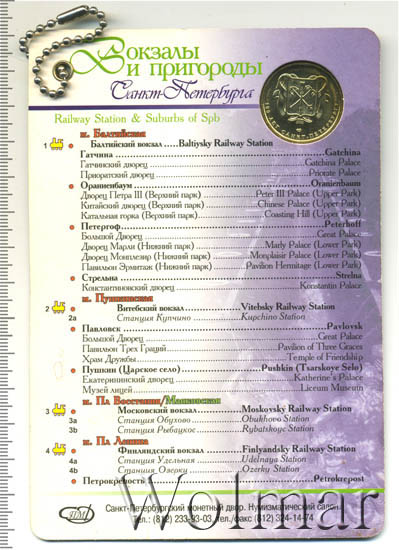 Вокзалы
и пригороды
Санкт-Петербурга
Railway Station & Suburbs of Spb
м. Балтийская
1 Балтийский вокзал.....Baltiysky Railway Station
Гатчина Gatchina
Гатчинский дворец Gatchina Palace
Приоратский дворец Priorate Palace
Ораниенбаум Oranienbaum
Дворец Петра III (Верхний парк) Peter III Palace (Upper Park)
Китайский дворец (Верхний парк) Chinese Palace (Upper Park)
Катальная горка (Верхний парк) Coasting Hill (Upper Park)
Петергоф Peterhoff
Большой Дворец Great Palace
Дворец Марли (Нижний парк) Marly Palace (Lower Park)
Дворец Монплезир (Нижний парк) Monplaisir Palace (Lower Park)
Павильон Эрмитаж (Нижний парк) Pavilion Hermitage (Lower Park)
Стрельна Strelna
Константиновский дворец Konstantin Palace
м. Пушкинская
2 Витебский вокзал Vitebsky Railway Station
2а Станция Купчино Kupchino Station
Павловск Pavlovsk
Большой Дворец Great Palace
Павильон Трех Граций Pavilion of Three Graces
Храм Дружбы Temple of Friendship
Пушкин (Царское село) Pushkin (Tsarskoye Selo)
Екатерининский дворец Katherine's Palace
Музей лицей Liceum Museum
м. Пл Восстания/Маяковская
3 Московский вокзал Moskovsky Railway Station
3а Станция Обухово Obukhovo Station
3b Станция Рыбацкое Rybatskoye Station
м. Пл Ленина
4 Финляндский вокзал Finlyandsky Railway Station
4а Станция Удельная Udelnaya Station
4b Станция Озерки Ozerky Station
Петрокрепость Petrokrepost
Санкт-Петербургский монетный двор. Нумизматический салон
Тел.: (812) 233-93-03, тел./факс (812) 324-14-74
Wolmar